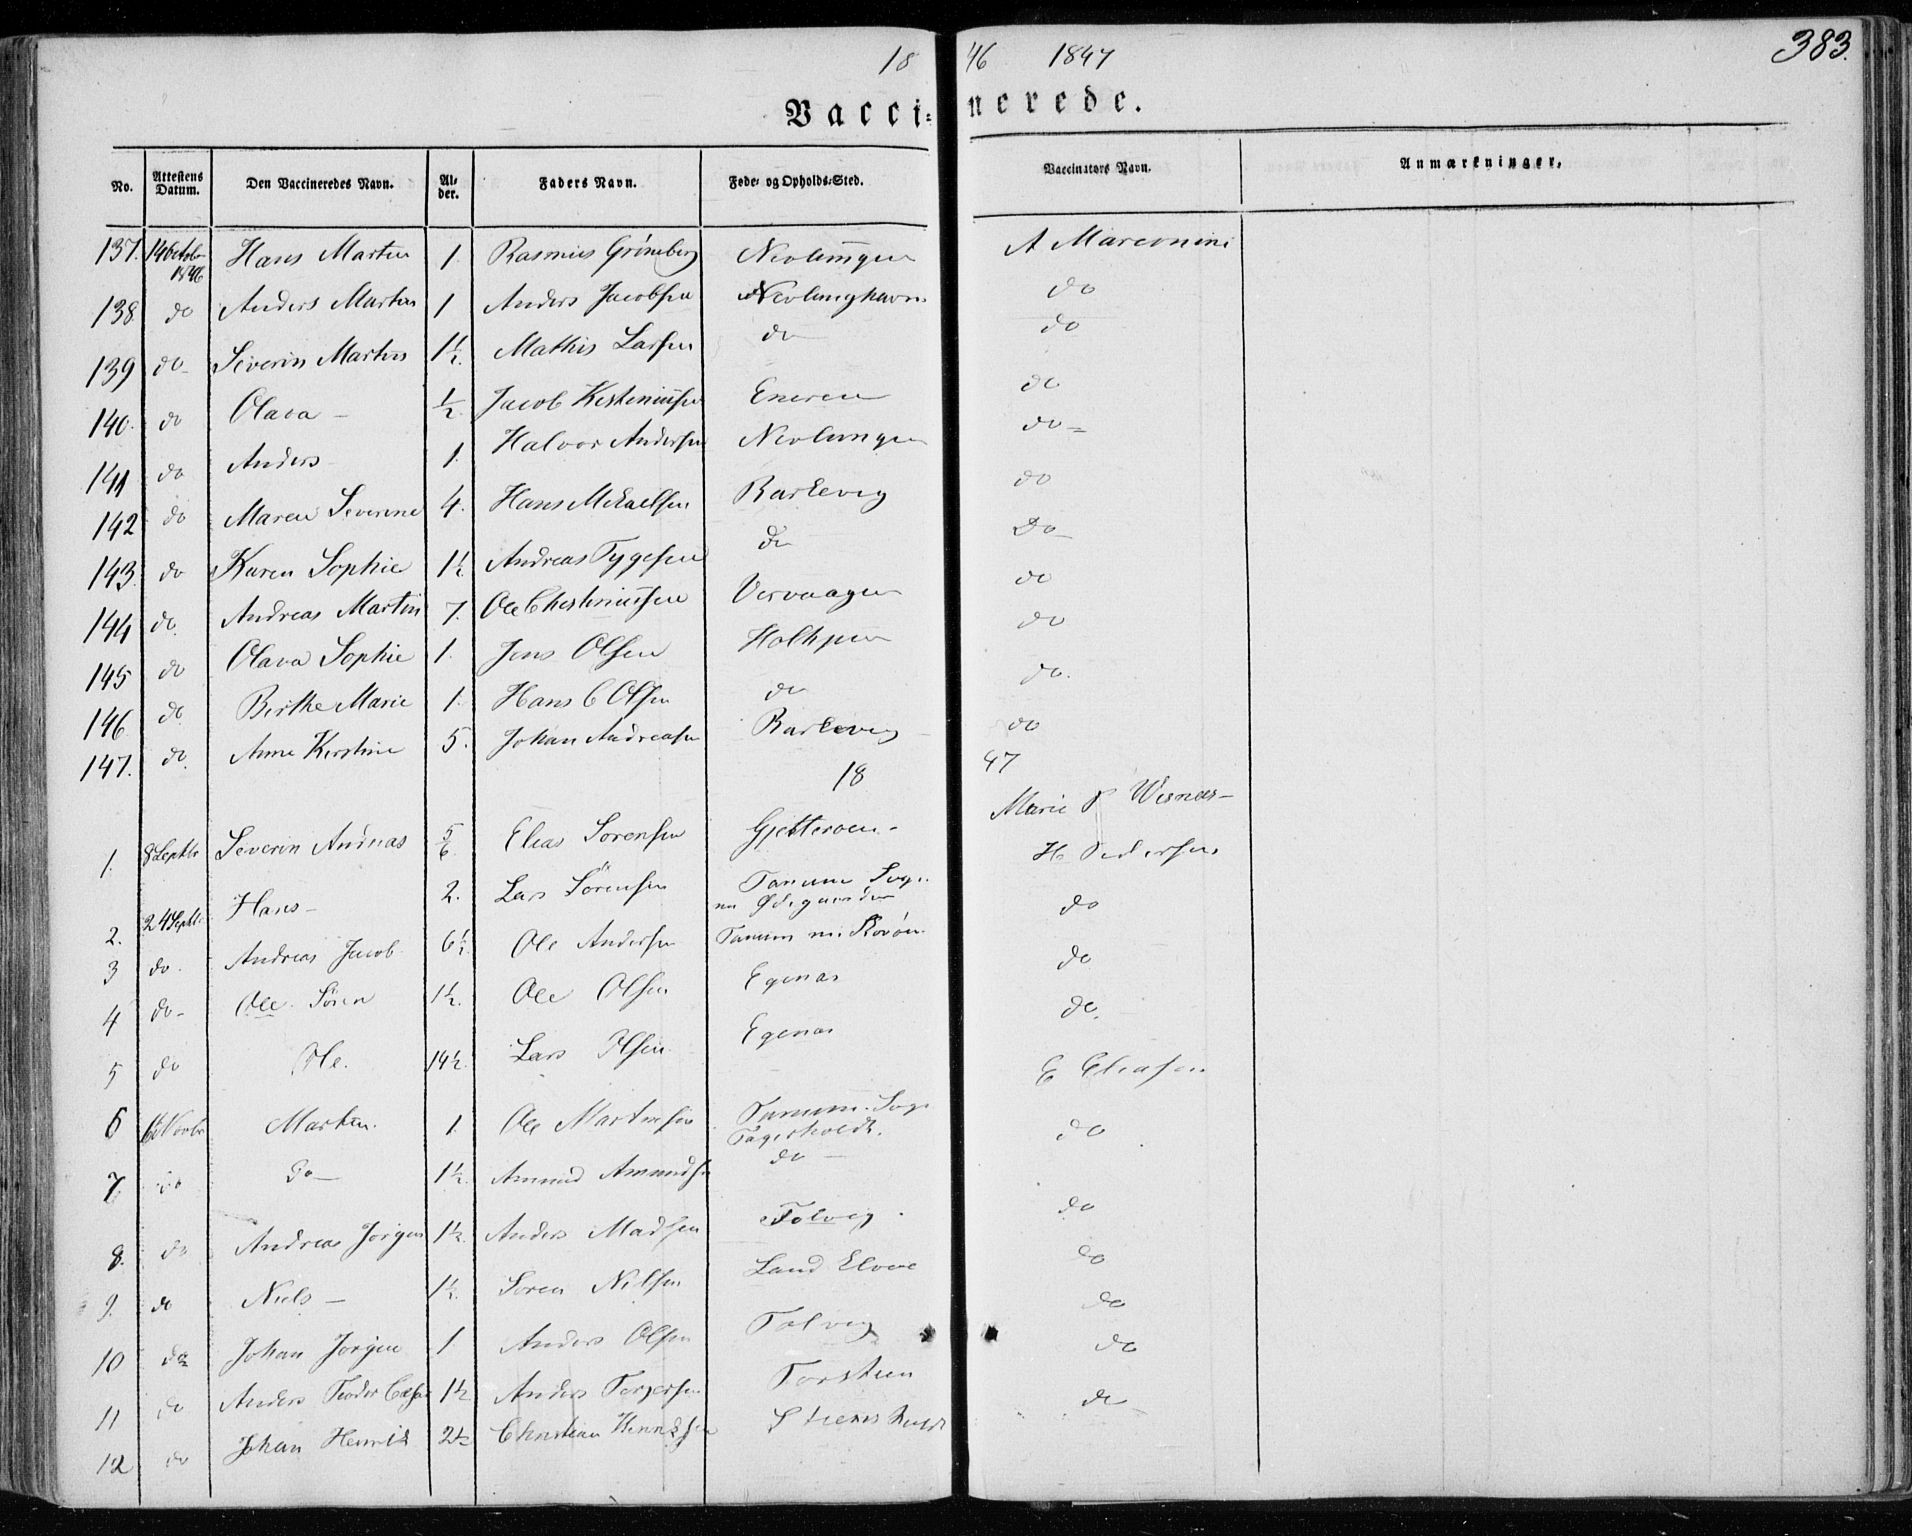 18 46 1847 383.
Vacci= nerede.
No. Attestens Datum. Den Vaccineredes Navn. Al= der. Faders Navn. Føde= og Opholds=Sted. Vaccinators Navn. Anmærkninger.
137. 14 Octbr 1846 Hans Martin 1. Rasmus Grøneberg Nevlungen A Marconini
138 do Anders Martin 1 Anders Jacobsen Nevlunghavn do
139 do Severin Martin 1½. Mathis Larsen do do
140. do Olava – ½ Jacob Kisteniusen Eneren do
141 do Anders – 1. Halvor Andersen Nevlungen do
142 do Maren Severine 4. Hans Mikaelsen Barkevig do
143. do Karen Sophie 1½. Andreas Tygesen do Do
144 do. Andreas Martin 7. Ole Chisteniusen Vervaagen do
145 do Olava Sophie 1. Jens Olsen Holtzen do
146 do Birthe Marie 1. Hans C Olsen do do.
147. do. Anne Kirstine 5. Johan Andreasen Barkevig do
18 47
1. 8 Septbr Severin Andreas 5/6 Elias Sorensen Gjetteroen. Marie P Wisnæs
2. 24 Septbr Hans – 2. Lars Sörensen Tanum Sogn Ødegaarden H Pedersen
3 do. Andreas Jacob 6½ Ole Andersen Tanum do
4 do Ole Sören 1½. Ole Olsen Egenas do
5 do Ole. 14½ Lars Olsen Egenas do.
6 Novbr Martin. 1. Ole Martinsen Tanum Sogn Fagerholdt. E Eliasen
7 do Do 1½ Amund Amundsen do do
8. do Andreas Jorgen 1½. Anders Madsen Folvig. do
9. do Niels – 1½. Soren Nilsen Land Elvene do
10 do Johan Jorgen 1 Anders Olsen Folvig do
11 do Anders 1½ Anders Torgersen Torstien do
12 do Johan Henrik 2½ Christian Henriksen do